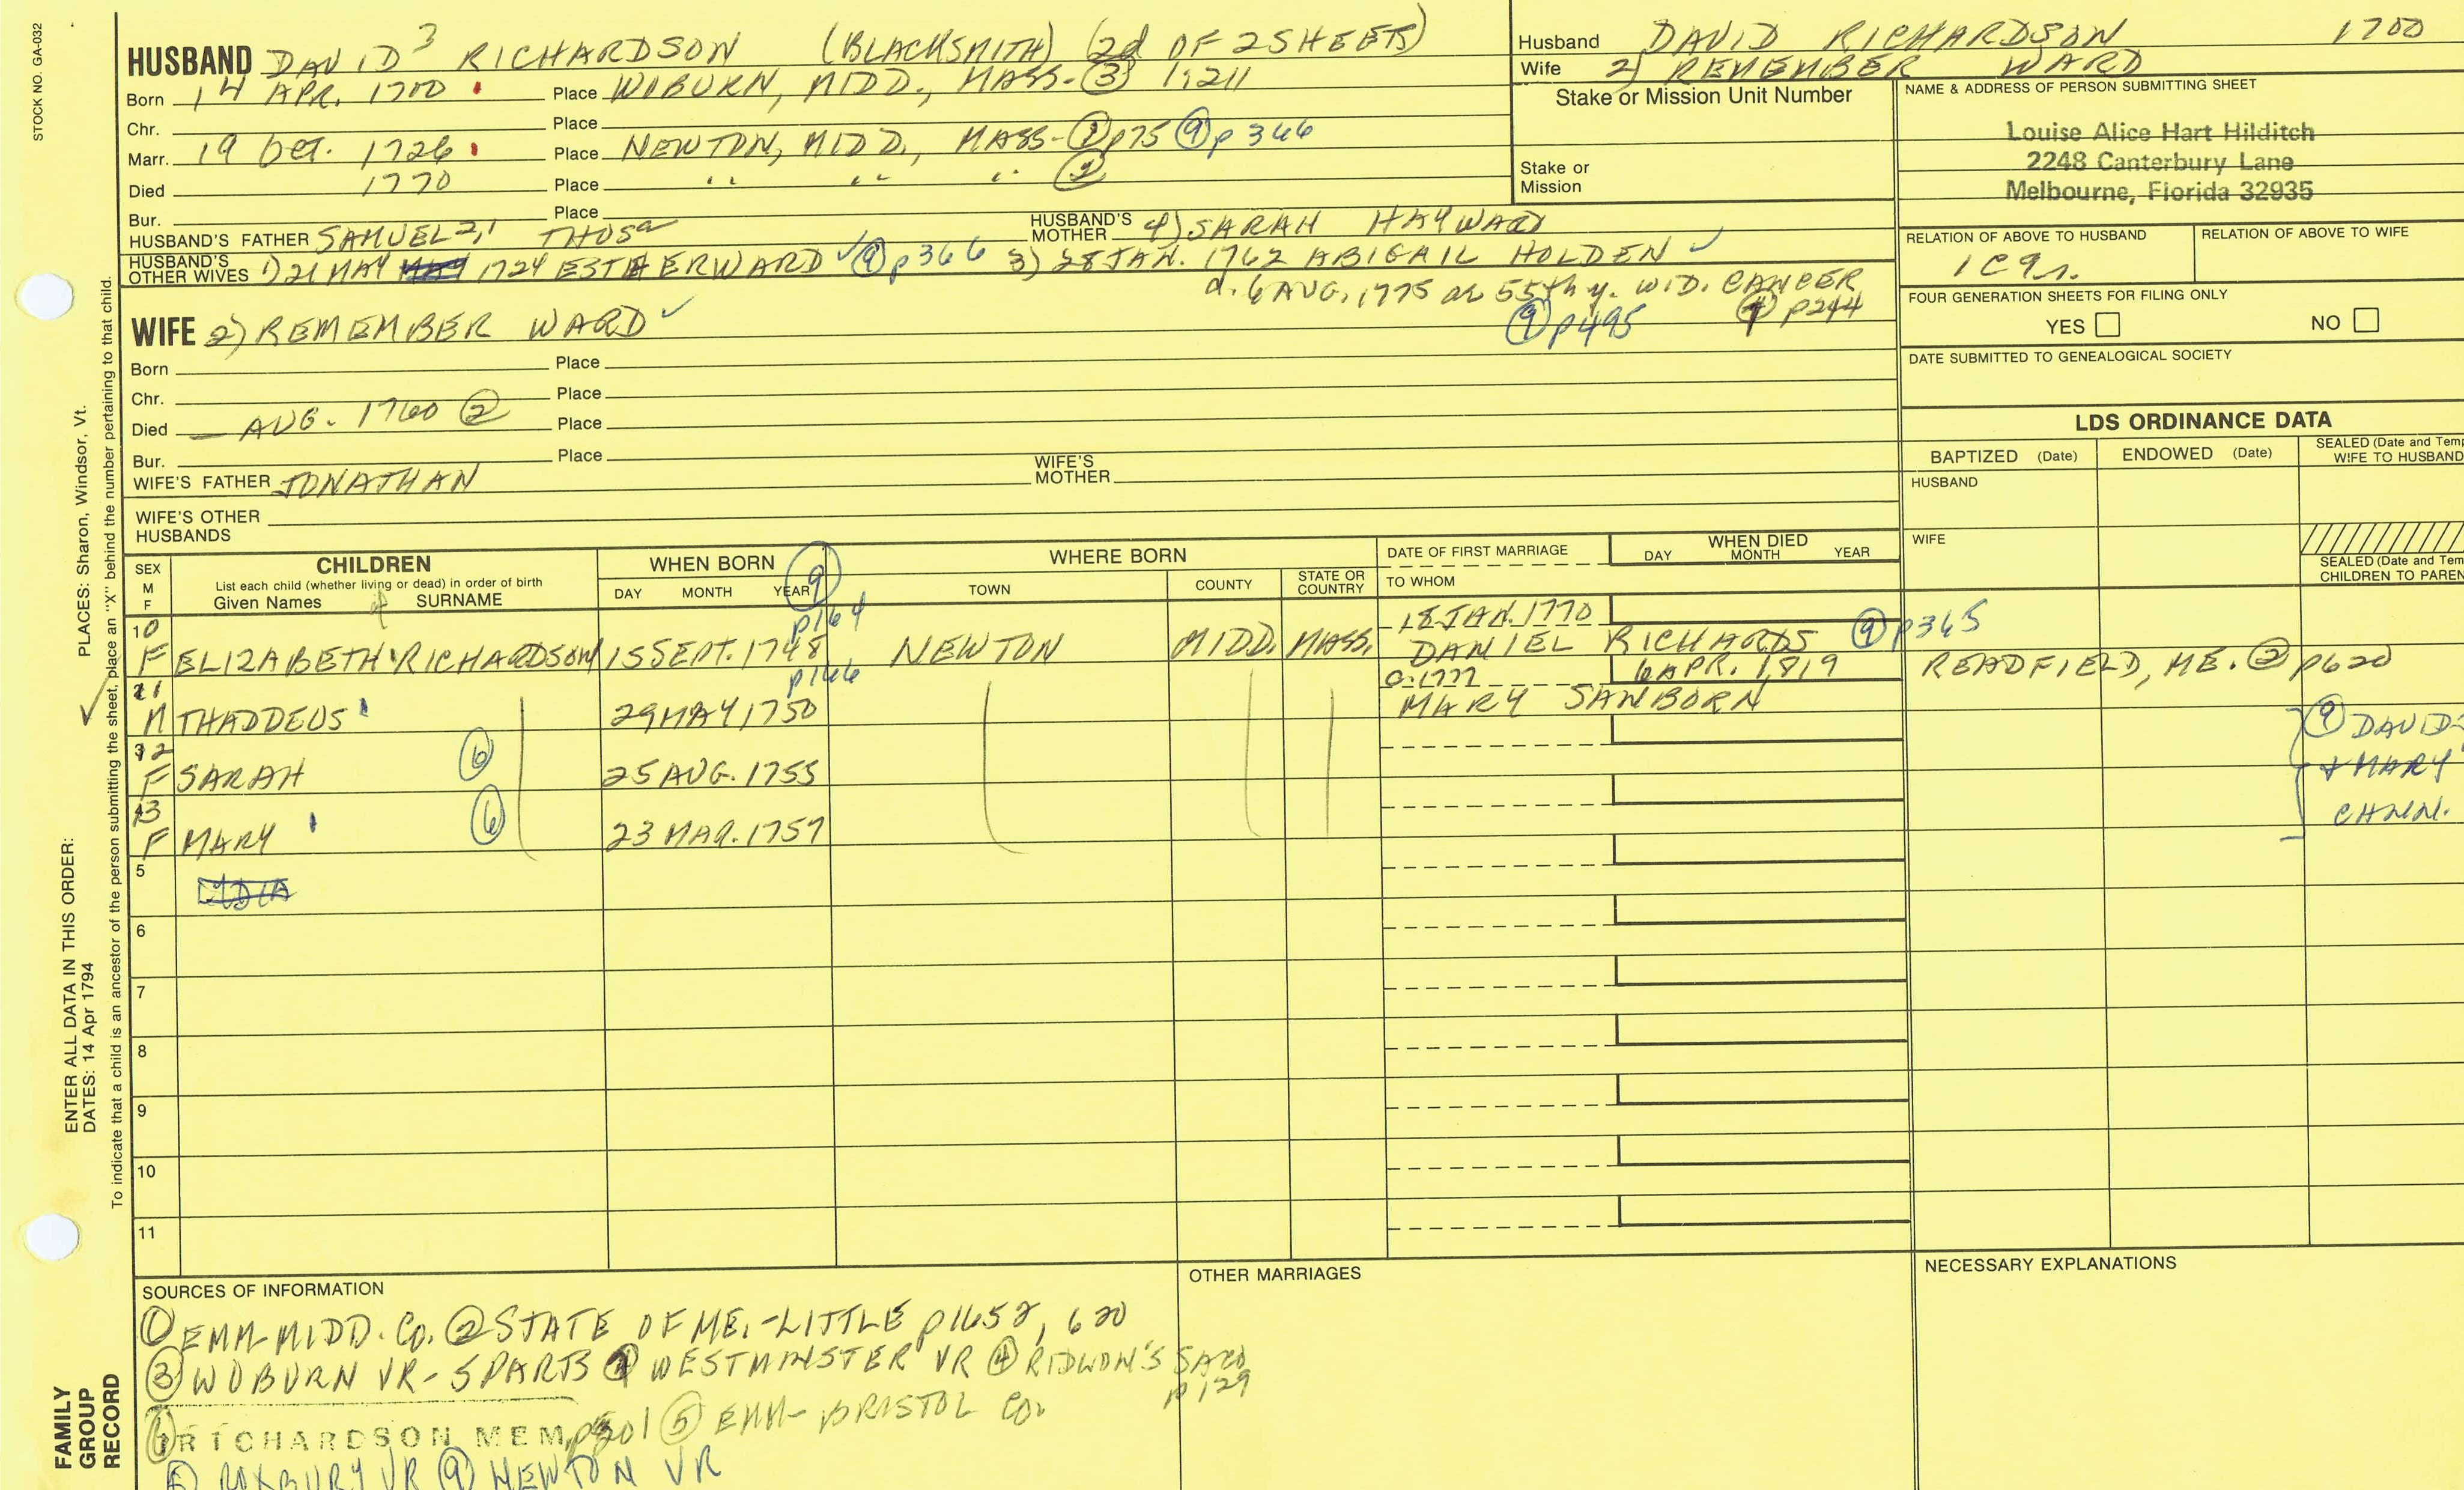 STOCK NO. GA-032
HUSBAND DAVID 3 RICHARDSON (BLACKSMITH) (2d OF 2 SHEETS)
Born 14 APR. 1700 Place WOBURN, MIDD., MASS-③ 1:211
Chr. Place
Marr. 19 OCT. 1726 Place NEWTON, MIDD., MASS-① p75 ⑨ p 366
Died 1770 Place " " " ②
Bur. Place
HUSBAND'S FATHER SAMUEL 2,1 THOSa HUSBAND'S MOTHER 4) SARAH HAYWARD
HUSBAND'S OTHER WIVES 1) 21 MAY 1724 ESTHER WARD ✓ ⑨ p 366 3) 28 JAN. 1762 ABIGAIL HOLDEN ✓
d. 6 AUG. 1775 ae 55th y. WID. CANCER
⑨ p495 p244
WIFE 2) REMEMBER WARD ✓
Born Place
Chr. Place
Died — AUG. 1760 ② Place
Bur. Place
WIFE'S FATHER JONATHAN WIFE'S MOTHER
WIFE'S OTHER HUSBANDS
Husband DAVID RICHARDSON 1700
Wife 2) REMEMBER WARD
Stake or Mission Unit Number
Stake or Mission
NAME & ADDRESS OF PERSON SUBMITTING SHEET
Louise Alice Hart Hilditch
2248 Canterbury Lane
Melbourne, Florida 32935
RELATION OF ABOVE TO HUSBAND RELATION OF ABOVE TO WIFE
FOUR GENERATION SHEETS FOR FILING ONLY
YES NO
DATE SUBMITTED TO GENEALOGICAL SOCIETY
LDS ORDINANCE DATA
BAPTIZED (Date) ENDOWED (Date) SEALED (Date and Temp
WIFE TO HUSBAND
HUSBAND
WIFE
SEALED (Date and Tem
CHILDREN TO PAREN
SEX M F CHILDREN WHEN BORN ⑨ WHERE BORN DATE OF FIRST MARRIAGE WHEN DIED
List each child (whether living or dead) in order of birth
Given Names SURNAME DAY MONTH YEAR TOWN COUNTY STATE OR COUNTRY TO WHOM DAY MONTH YEAR
10 p164 18 JAN. 1770
F ELIZABETH RICHARDSON 15 SEPT. 1748 NEWTON MIDD. MASS. DANIEL RICHARDS ⑨ p365
11 p166 c. 1777 6 APR. 1819 READFIELD, ME. ② p620
M THADDEUS 29 MAY 1750 MARY SANBORN
12
F SARAH ⑥ 25 AUG. 1755
13
F MARY ⑥ 23 MAR. 1757
⑨ DAVID
+ MARY
CHNN.
5
LYDIA
6
7
8
9
10
11
SOURCES OF INFORMATION
① EMM-MIDD. CO. ② STATE OF ME.-LITTLE p1652, 620
③ WOBURN VR-5 PARTS WESTMINSTER VR ④ RIDLON'S SACO
p 129
RICHARDSON MEM, ⑤ EMM-BRISTOL CO.
ROXBURY VR ⑨ NEWTON VR
OTHER MARRIAGES
NECESSARY EXPLANATIONS
PLACES: Sharon, Windsor, Vt.
ENTER ALL DATA IN THIS ORDER:
DATES: 14 Apr 1794
To indicate that a child is an ancestor of the person submitting the sheet, place an "X" behind the number pertaining to that child.
FAMILY
GROUP
RECORD